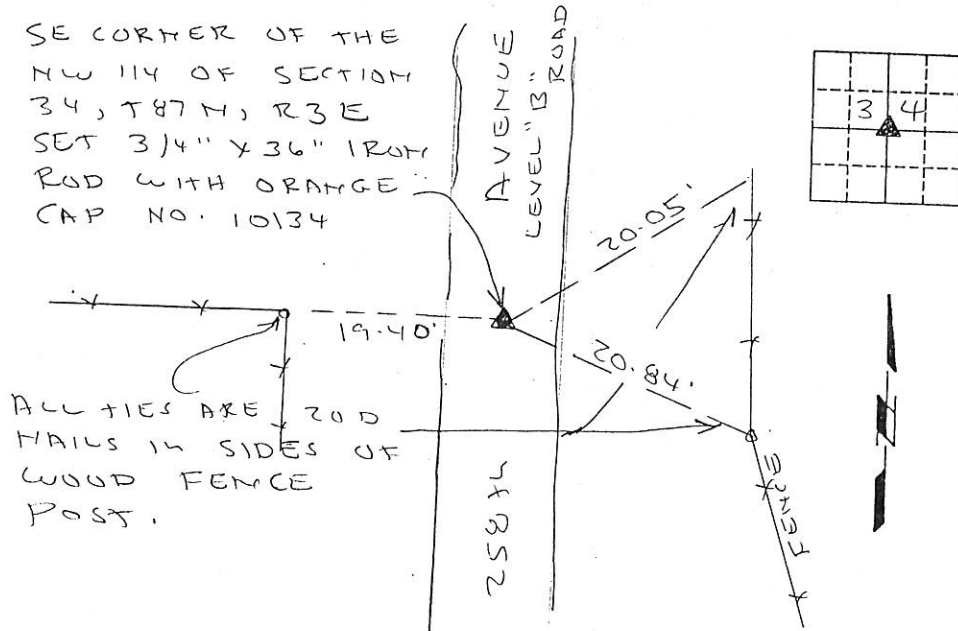 SE CORNER OF THE
NW 1/4 OF SECTION
34, T87N, R3E
SET 3/4" X 36" IRON
ROD WITH ORANGE
CAP NO. 10134
258TH
AVENUE
LEVEL "B" ROAD
3 4
20.05'
19.40'
20.84'
N
ALL TIES ARE 20D
NAILS IN SIDES OF
WOOD FENCE
POST.
FENCE